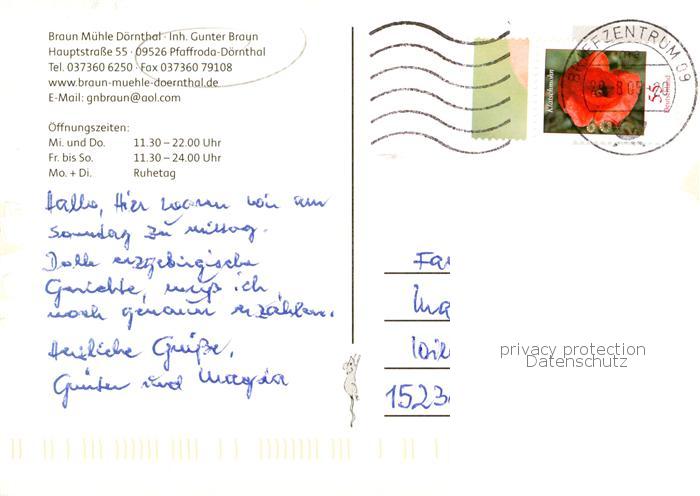 Braun Mühle Dörnthal · Inh. Gunter Braun
Hauptstraße 55 · 09526 Pfaffroda-Dörnthal
Tel. 037360 6250 · Fax 037360 79108
www.braun-muehle-doernthal.de
E-Mail: gnbraun@aol.com
Öffnungszeiten:
Mi. und Do. 11.30 – 22.00 Uhr
Fr. bis So. 11.30 – 24.00 Uhr
Mo. + Di. Ruhetag
Hallo, Hier waren wir am
Sonntag zu Mittag.
Dolle erzgebirgische
Gerichte, muß ich
noch genauer erzählen.
Herzliche Grüße,
Günter und
BRIEFZENTRUM 09
Klatschmohn
55
Deutschland
Fa
Ma
Wil
1523
privacy protection
Datenschutz